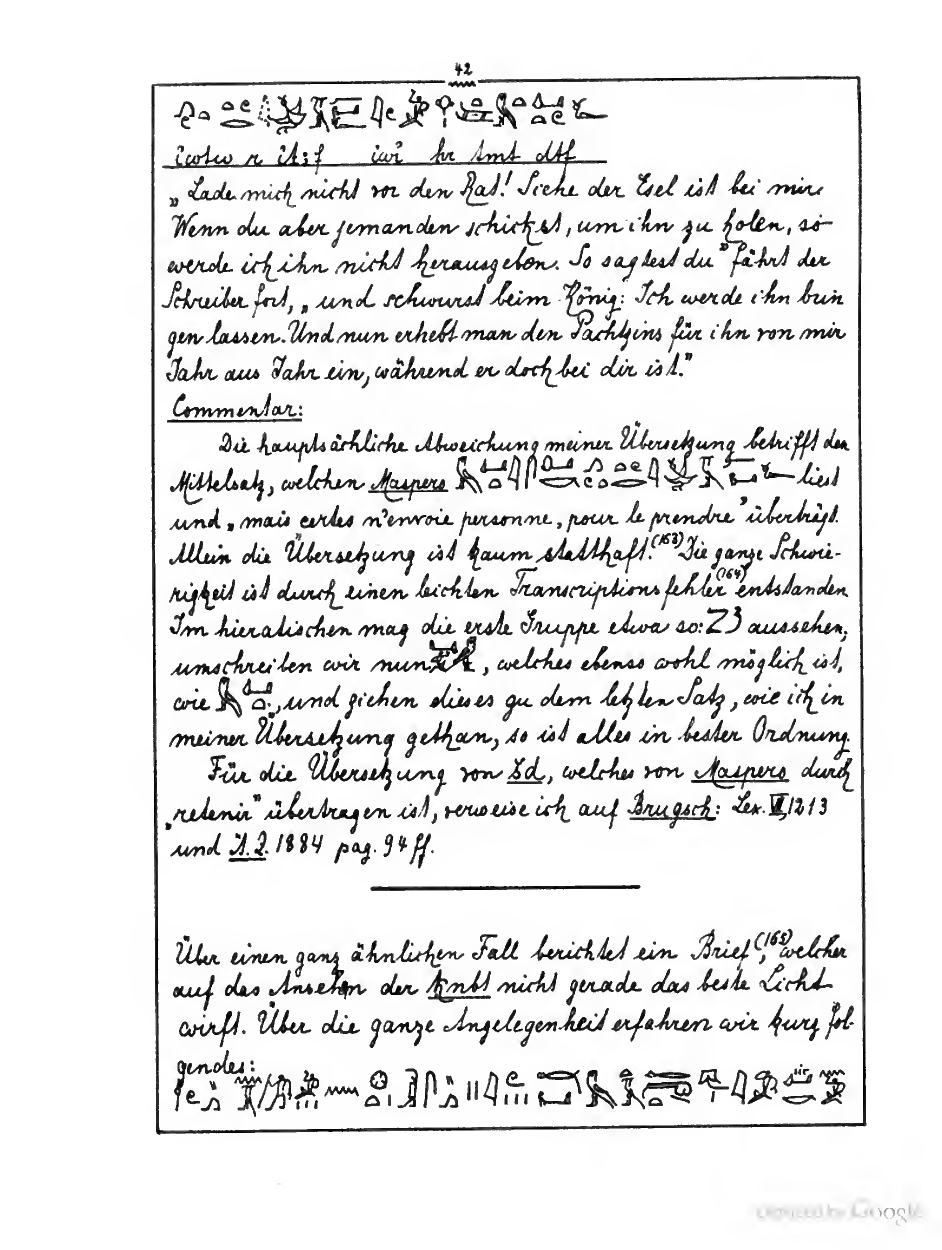 42
„Lade mich nicht vor den Rat! Siehe der Esel ist bei mir.
Wenn du aber jemanden schickst, um ihn zu holen, so
werde ich ihn nicht herausgeben. So sagtest du” fährt der
Schreiber fort, „und schwurst beim König: Ich werde ihn brin
gen lassen. Und nun erhebt man den Pachtzins für ihn von mir
Jahr aus Jahr ein, während er doch bei dir ist.”
Commentar:
Die hauptsächliche Abweichung meiner Übersetzung betrifft den
Mittelsatz, welchen Maspero liest
und „mais certes n'envoie personne, pour le prendre” überträgt.
Allein die Übersetzung ist kaum statthaft.(163) Die ganze Schwie-
rigkeit ist durch einen leichten Transcriptionsfehler(164) entstanden.
Im hieratischen mag die erste Gruppe etwa so: aussehen,
umschreiben wir nun , welches ebenso wohl möglich ist,
wie , und ziehen dieses zu dem letzten Satz, wie ich in
meiner Übersetzung gethan, so ist alles in bester Ordnung.
Für die Übersetzung von , welches von Maspero durch
„retenir” übertragen ist, verweise ich auf Brugsch: Lex. 1213
und Ä.Z. 1884 pag. 94 ff.
Über einen ganz ähnlichen Fall berichtet ein Brief,(165) welcher
auf das Ansehen der knbt nicht gerade das beste Licht
wirft. Über die ganze Angelegenheit erfahren wir kurz fol-
gendes:
Digitized by Google